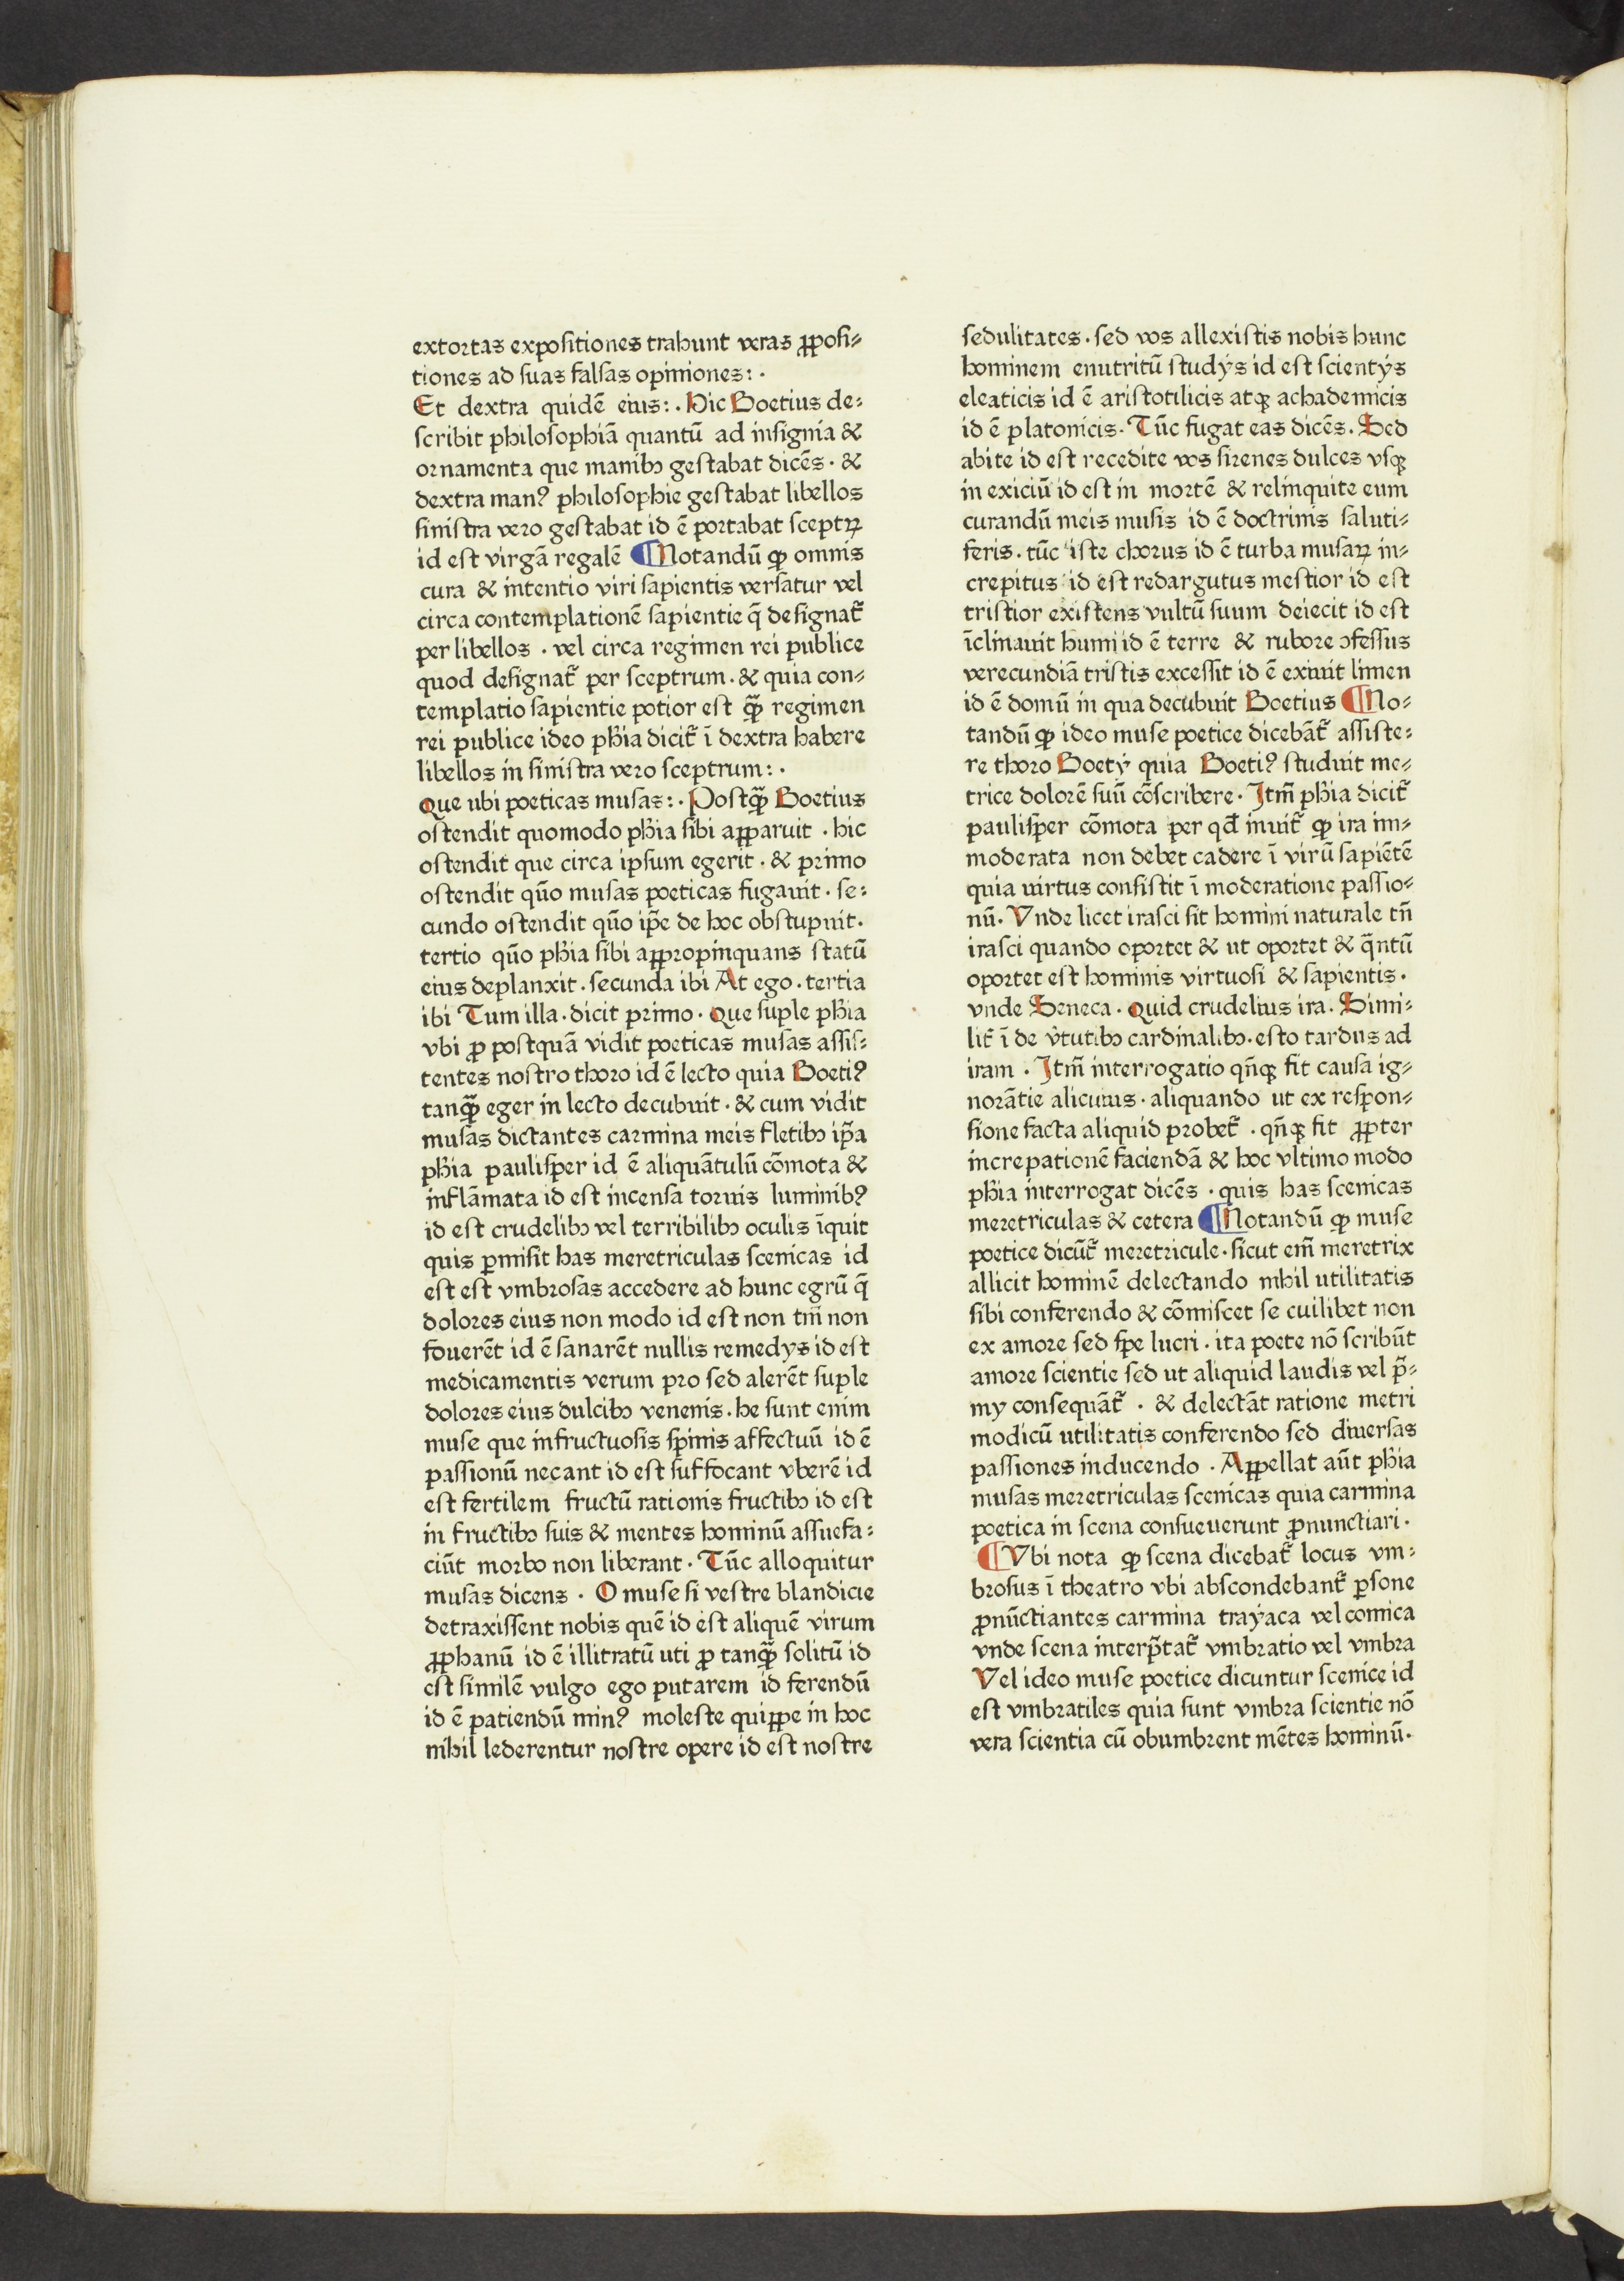 extortas expositiones trahunt veras ꝓposi⸗
tiones ad suas falsas opiniones: ·
Et dextra quidē eius: · Hic Boetius de⸗
scribit philosophiā quantū ad insignia &
ornamenta que manibꝫ gestabat dicēs · &
dextra manꝰ philosophie gestabat libellos
sinistra vero gestabat id ē portabat sceptꝝ
id est virgā regalē ¶ Notandū ꝙ omnis
cura & intentio viri sapientis versatur vel
circa contemplationē sapientie q̄ designat᷑
per libellos · vel circa regimen rei publice
quod designat᷑ per sceptrum · & quia con⸗
templatio sapientie potior est qꝫ̄ regimen
rei publice ideo phīa dicit᷑ ī dextra habere
libellos in sinistra vero sceptrum: ·
Que ubi poeticas musas: · Postqꝫ̄ Boetius
ostendit quomodo phīa sibi apparuit · hic
ostendit que circa ipsum egerit · & primo
ostendit quō musas poeticas fugauit · se⸗
cundo ostendit quō ip̄e de hoc obstupuit ·
tertio quō phīa sibi appropinquans statū
eius deplanxit · secunda ibi At ego · tertia
ibi Tum illa · dicit primo · Que suple phīa
vbi ꝓ postquā vidit poeticas musas assis⸗
tentes nostro thoro id ē lecto quia Boetiꝰ
tanqꝫ̄ eger in lecto decubuit · & cum vidit
musas dictantes carmina meis fletibꝫ ip̄a
phīa paulisper id ē aliquātulū cōmota &
inflāmata id est incensa toruis luminibꝰ
id est crudelibꝫ vel terribilibꝫ oculis īquit
quis ꝑmisit has meretriculas scenicas id
est est vmbrosas accedere ad hunc egrū q̄
dolores eius non modo id est non tm̄ non
fouerēt id ē sanarēt nullis remedys id est
medicamentis verum pro sed alerēt suple
dolores eius dulcibꝫ venenis · he sunt enim
muse que infructuosis spinis affectuū id ē
passionū necant id est suffocant vberē id
est fertilem fructū rationis fructibꝫ id est
in fructibꝫ suis & mentes hominū assuefa⸗
ciūt morbo non liberant · Tūc alloquitur
musas dicens · O muse si vestre blandicie
detraxissent nobis quē id est aliquē virum
ꝓphanū id ē illitratū uti ꝓ tanqꝫ̄ solitū id
est similē vulgo ego putarem id ferendū
id ē patiendū minꝰ moleste quippe in hoc
nihil lederentur nostre opere id est nostre
sedulitates · sed vos allexistis nobis hunc
hominem enutritū studÿs id est scientÿs
eleaticis id ē aristotilicis atqꝫ achademicis
id ē platonicis · Tūc fugat eas dicēs · Sed
abite id est recedite vos sirenes dulces vsqꝫ
in exiciū id est in mortē & relinquite eum
curandū meis musis id ē doctrinis saluti⸗
feris · tūc iste chorus id ē turba musaꝝ in⸗
crepitus id est redargutus mestior id est
tristior existens vultū suum deiecit id est
īclinauit humi id ē terre & rubore ꝯfessus
verecundiā tristis excessit id ē exiuit limen
id ē domū in qua decubuit Boetius ¶ No⸗
tandū ꝙ ideo muse poetice dicebāt᷑ assiste⸗
re thoro Boetÿ quia Boetiꝰ studuit me⸗
trice dolorē suū cōscribere · Itm̄ phīa dicit᷑
paulisper cōmota per qd̄ inuit᷑ ꝙ ira im⸗
moderata non debet cadere ī virū sapiētē
quia uirtus consistit ī moderatione passio⸗
nū · Vnde licet irasci sit homini naturale tn̄
irasci quando oportet & ut oportet & q̄ntū
oportet est hominis virtuosi & sapientis ·
vnde Seneca · quid crudelius ira · Simi⸗
lit᷑ ī de v̓tutibꝫ cardinalibꝫ · esto tardus ad
iram · Itm̄ interrogatio qn̄qꝫ fit causa ig⸗
norātie alicuius · aliquando ut ex respon⸗
sione facta aliquid probet᷑ · qn̄qꝫ fit ꝓpter
increpationē faciendā & hoc vltimo modo
phīa interrogat dicēs · quis has scenicas
meretriculas & cetera ¶ Notandū ꝙ muse
poetice dicūt᷑ meretricule · sicut em̄ meretrix
allicit hominē delectando nihil utilitatis
sibi conferendo & cōmiscet se cuilibet non
ex amore sed spe lucri · ita poete nō scribūt
amore scientie sed ut aliquid laudis vel p̄⸗
my consequāt᷑ · & delectāt ratione metri
modicū utilitatis conferendo sed diuersas
passiones inducendo · Appellat aūt phīa
musas meretriculas scenicas quia carmina
poetica in scena consueuerunt ꝓnunctiari ·
¶ Vbi nota ꝙ scena dicebat᷑ locus vm⸗
brosus ī theatro vbi abscondebant᷑ ꝑsone
ꝓnūctiantes carmina traÿaca vel comica
vnde scena interp̄tat᷑ vmbratio vel vmbra
Vel ideo muse poetice dicuntur scenice id
est vmbratiles quia sunt vmbra scientie nō
vera scientia cū obumbrent mētes hominū ·